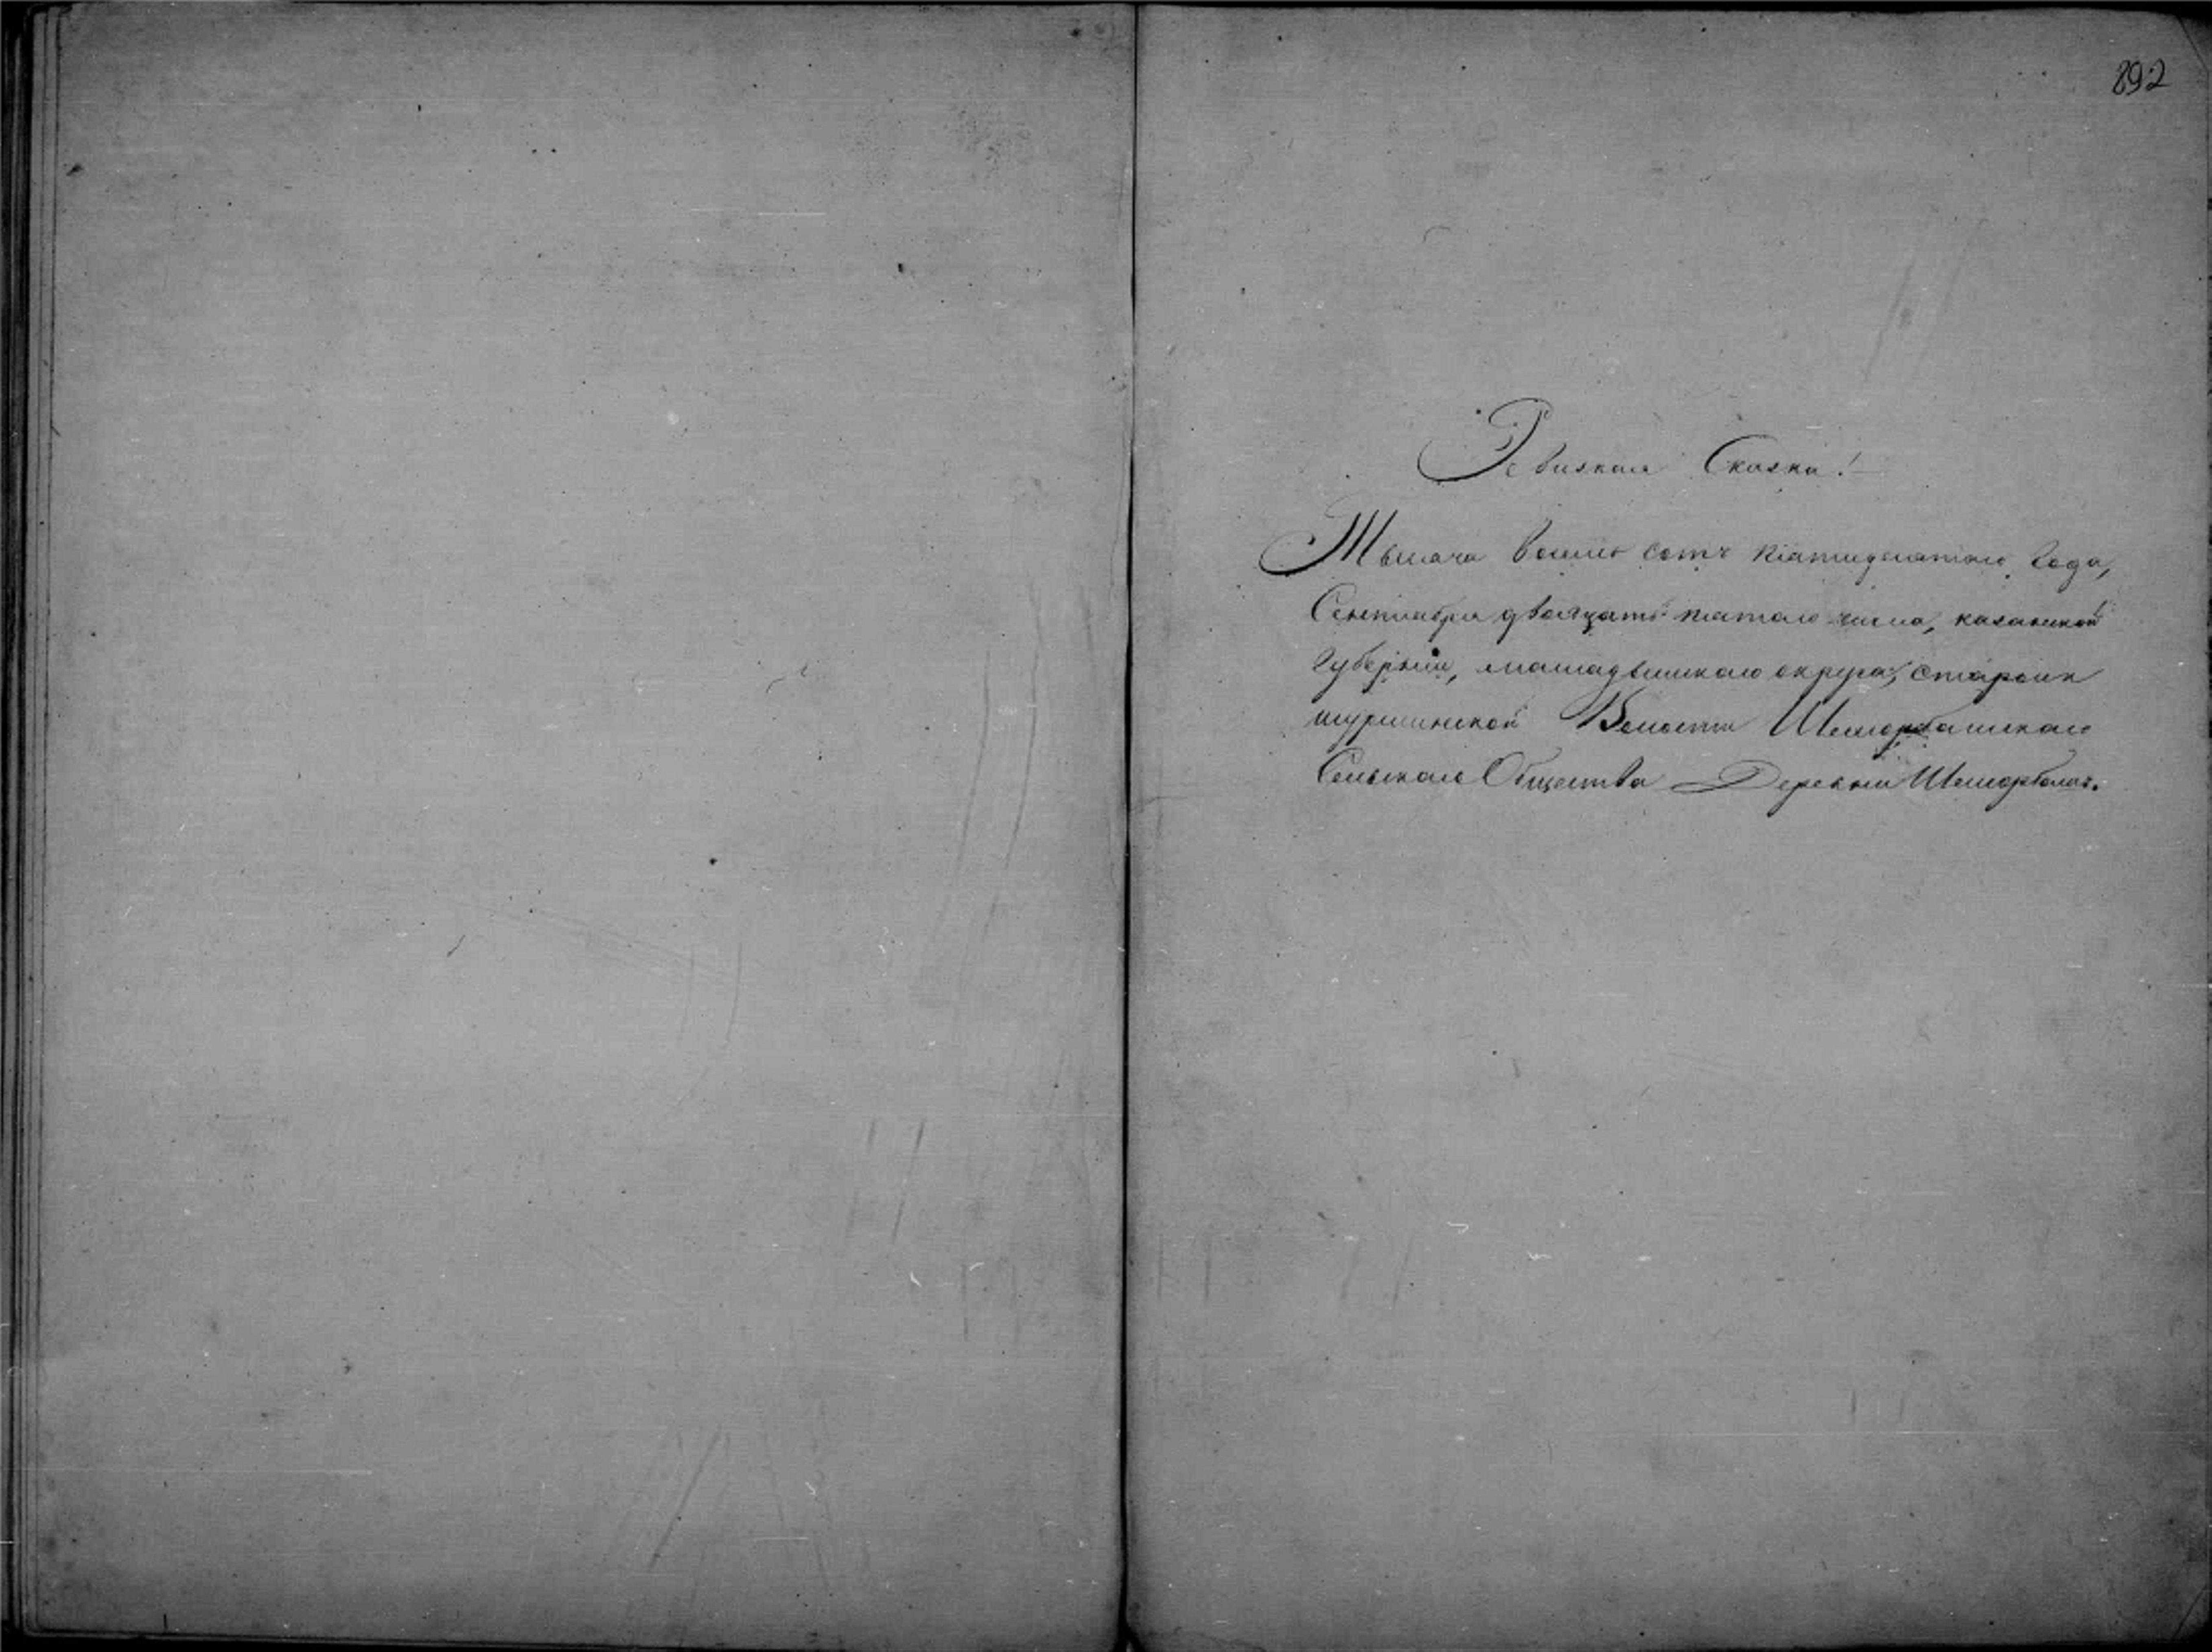 892
Ревизкая Сказка!
Тысяча восемь сотъ пятидесятаго года,
Сентября двадцать пятаго числа, казанской
Губерніи, мамадышскаго округа, староик
шурминской Волости Шеморбашскаго
Сельскаго Общества Деревни Шеморбашъ.